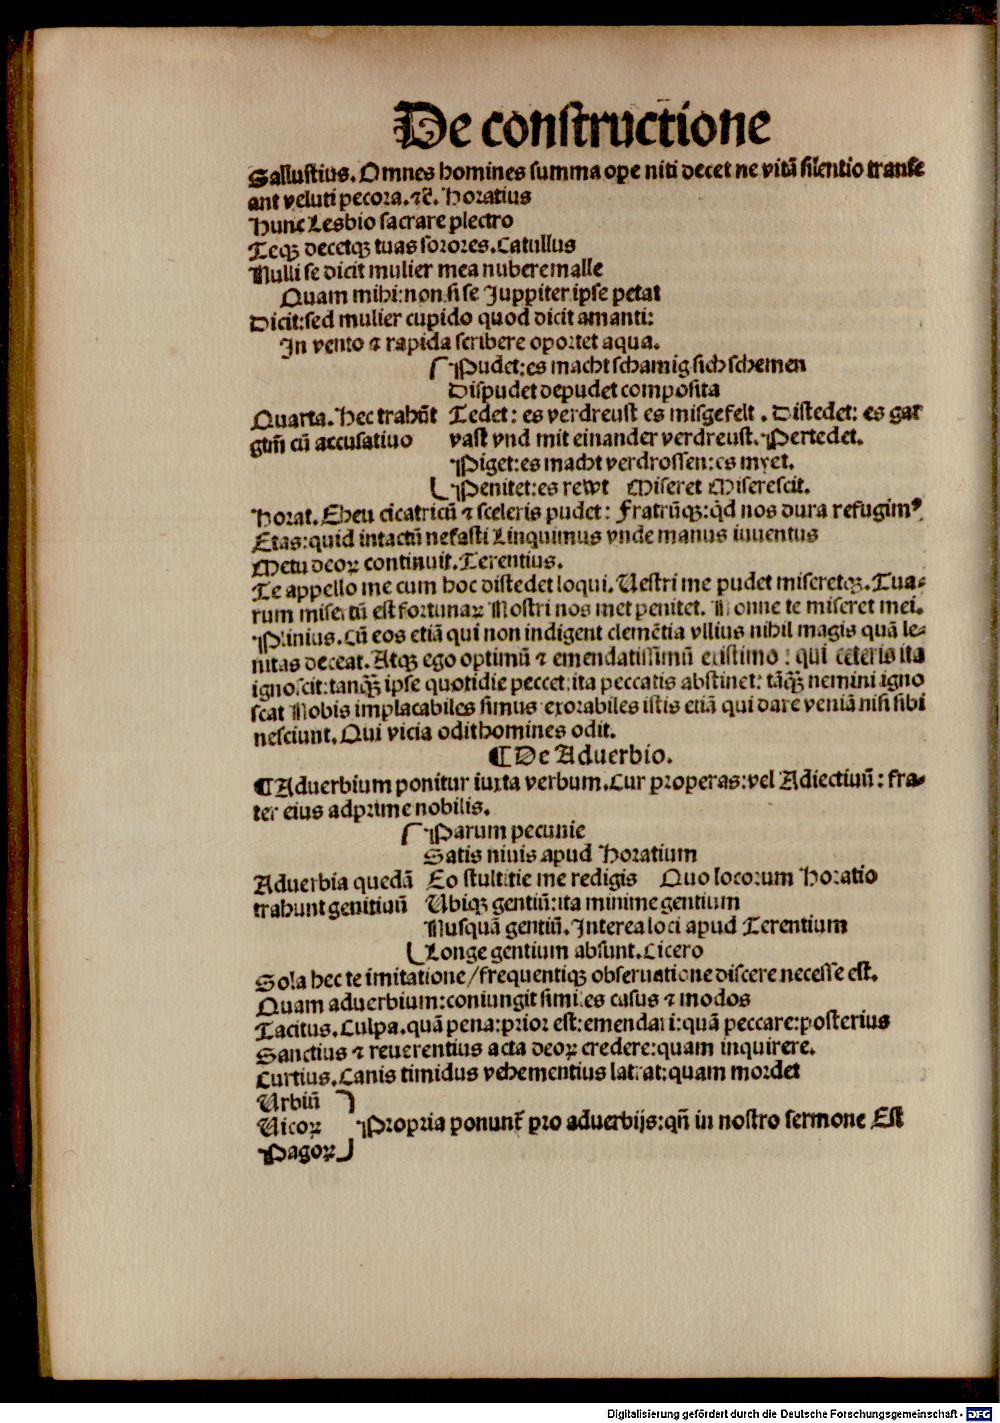 De constructione
Sallustius. Omnes homines summa ope niti decet ne vitā silentio transe
ant veluti pecora. ⁊c̄. Horatius
Hunc Lesbio sacrare plectro
Teqꝫ decetqꝫ tuas sorores. Catullus
Nulli se dicit mulier mea nubere malle
Quam mihi: non si se Juppiter ipse petat
Dicit: sed mulier cupido quod dicit amanti:
In vento ⁊ rapida scribere oportet aqua.
Pudet: es macht schamig sich schemen
Dispudet depudet composita
Quarta. Hec trahūt Tedet: es verdreust es misgefelt. Distedet: es gar
gtm̄ cū accusatiuo vast vnd mit einander verdreust. Pertedet.
Piget: es macht verdrossen: es myet.
Penitet: es rewt Miseret Miserescit.
Horat. Eheu cicatricū ⁊ sceleris pudet: Fratrūqꝫ: qd̄ nos dura refugimꝰ
Etas: quid intactū nefasti Linquimus vnde manus iuuentus
Metu deoꝝ continuit. Terentius.
Te appello me cum hoc distedet loqui. Uestri me pudet miseretqꝫ. Tua-
rum miseritū est fortunaꝝ Nostri nos met penitet. Nonne te miseret mei.
Plinius. Cū eos etiā qui non indigent clemētia vllius nihil magis quā le-
nitas deceat. Atqꝫ ego optimū ⁊ emendatissimū existimo: qui ceteris ita
ignoscit: tanqꝫ̄ ipse quotidie peccet: ita peccatis abstinet: tāqꝫ̄ nemini igno
scat Nobis implacabiles simus exorabiles istis etiā qui dare veniā nisi sibi
nesciunt. Qui vicia odit homines odit.
¶ De Aduerbio.
¶ Aduerbium ponitur iuxta verbum. Cur properas: vel Adiectiuū: fra-
ter eius adprime nobilis.
Parum pecunie
Satis niuis apud Horatium
Aduerbia quedā Eo stultitie me redigis Quo locorum Horatio
trahunt genitiuū Ubiqꝫ gentiū: ita minime gentium
Nusquā gentiū. Interea loci apud Terentium
Longe gentium absunt. Cicero
Sola hec te imitatione/ frequentiqꝫ obseruatione discere necesse est.
Quam aduerbium: coniungit similes casus ⁊ modos
Tacitus. Culpa. quā pena: prior est: emendari: quā peccare: posterius
Sanctius ⁊ reuerentius acta deoꝝ credere: quam inquirere.
Curtius. Canis timidus vehementius latrat: quam mordet
Urbiū
Uicoꝝ Propria ponunt̄ pro aduerbijs: qn̄ in nostro sermone Est
Pagoꝝ
Digitalisierung gefördert durch die Deutsche Forschungsgemeinschaft - DFG